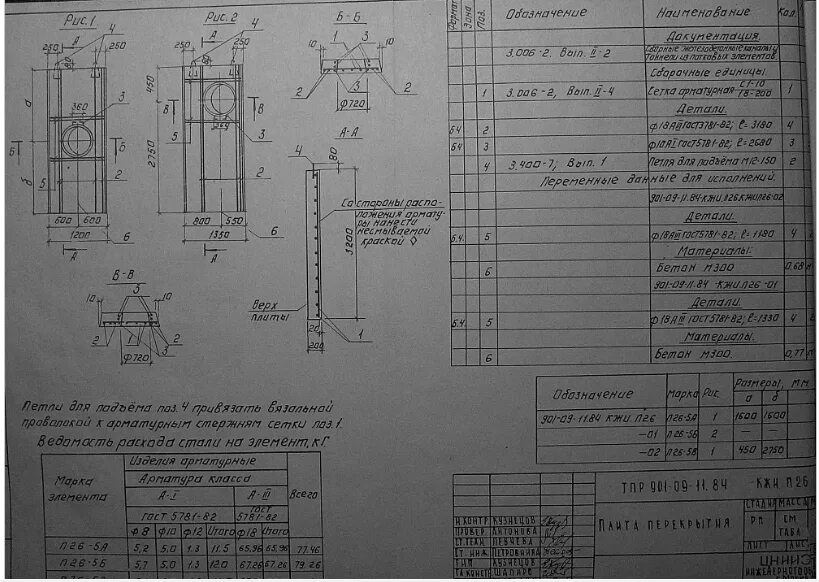 Рис.1
Рис. 2
Б-Б
А
4
А
4
1
3
250
80
250
250
80
250
10
10
2
2
ф720
450
360
3
В
В
а
2750
Б
Б
5
5
3
А-А
4
80
2
2
б
Со стороны распо-
ложения армату-
ры нанести
несмываемой
краской
3200
600
600
800
550
1200
6
1350
6
А
А
В-В
3
10
10
2
1
3
2
ф720
Верх
плиты
20
200
1
Петли для подъёма поз. 4 привязать вязальной
проволокой к арматурным стержням сетки поз.1.
Ведомость расхода стали на элемент, кг
Марка элемента
Изделия арматурные
Арматура класса
Всего
А-I
А-III
ГОСТ 5781-82
ГОСТ 5781-82
ф8 ф10 ф12 Итого ф18 Итого
П26-5А 5,2 5.0 1.3 11.5 65,96 65,96 77.46
П26-5Б 5,7 5.0 1.3 12.0 67.26 67.26 79.26
Формат Зона Поз. Обозначение Наименование Кол.
Документация
3.006-2. Вып. II-2 Сборные железобетонные каналы и
тоннели из лотковых элементов
Сборочные единицы.
1 3.006-2, Вып. II-4 Сетка арматурная 1
Детали.
Б4 2 ф18АIII ГОСТ5781-82; ℓ=3180 4
Б4 3 ф10АI ГОСТ5781-82; ℓ=2680 3
4 3.400-7; Вып. 1 Петля для подъёма М12-150 2
Переменные данные для исполнений.
901-09-11.84 КЖИ.П26 КЖИ П26-02
Детали.
Б.4. 5 ф18АIII ГОСТ5781-82; ℓ=1180 4
Материалы:
6 Бетон М300 0,68
901-09-11.84 -КЖИ.П26 -01
Детали.
Б.4. 5 ф18АIII ГОСТ5781-82; ℓ=1330 4
Материалы:
6 Бетон М300. 0,77
Обозначение Марка Рис Размеры, мм
а б
901-09-11.84 КЖИ. П26 П26-5А 1 1600 1600
-01 П26-5Б 2 — —
-02 П26-5В 1 450 2750
ТПР 901-09-11.84 -КЖИ П26
Плита перекрытия
СТАДИЯ МАССА
РП СМ.
ТАБЛ
ЛИСТ
Н.КОНТР КУЗНЕЦОВ
ПРОВЕР АНТОНОВА
СТ.ТЕХН ПЕВЧЕВА
СТ. ИНЖ ПЕТРОВНИНА
ГИП КУЗНЕЦОВ
ГЛ.КОНСТ ШАПИРО
ЦНИИЭ
ИНЖЕНЕРНОГО